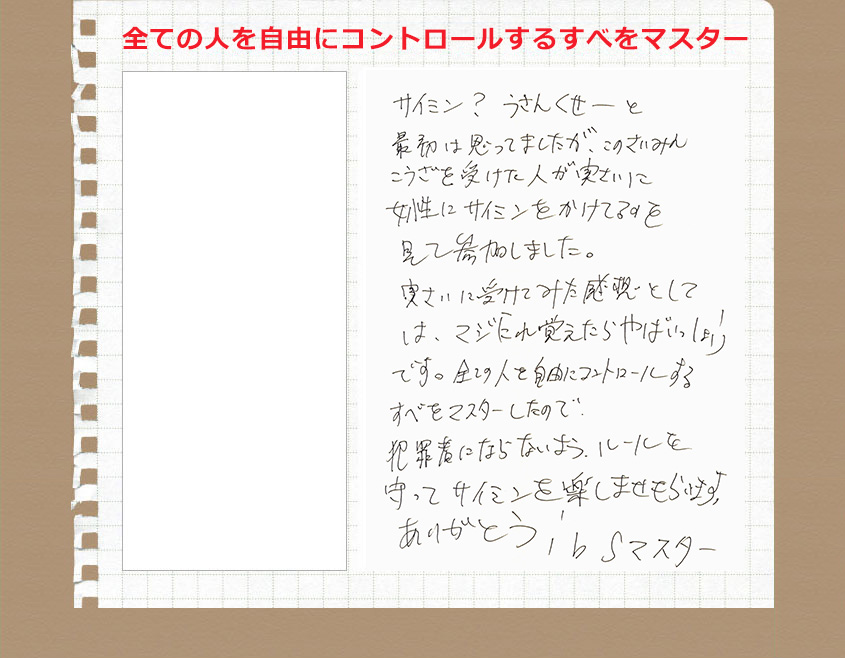 全ての人を自由にコントロールするすべをマスター
サイミン？ うさんくせーと
最初は思ってましたが、このさいみん
こうざを受けた人が実さいに
女性にサイミンをかけてるのを
見て参加しました。
実さいに受けてみた感想として
は、マジこれ覚えたらやばいっしょ!!
です。全ての人を自由にコントロールする
すべをマスターしたので、
犯罪者にならないよう、ルールを
守ってサイミンを楽しませもらいます。
ありがとう ibSマスター